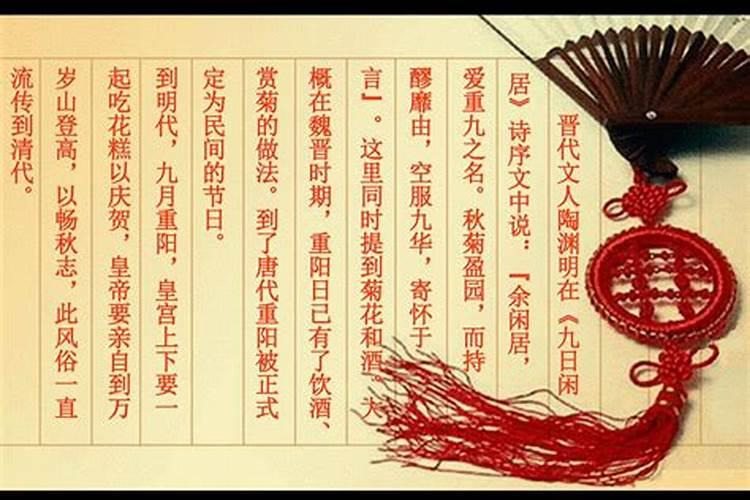 晋代文人陶渊明在《九日闲
居》诗序文中说：『余闲居，
爱重九之名。秋菊盈园，而持
醪靡由，空服九华，寄怀于
言』。这里同时提到菊花和酒。大
概在魏晋时期，重阳日已有了饮酒、
赏菊的做法。到了唐代重阳被正式
定为民间的节日。
到明代，九月重阳，皇宫上下要一
起吃花糕以庆贺，皇帝要亲自到万
岁山登高，以畅秋志，此风俗一直
流传到清代。